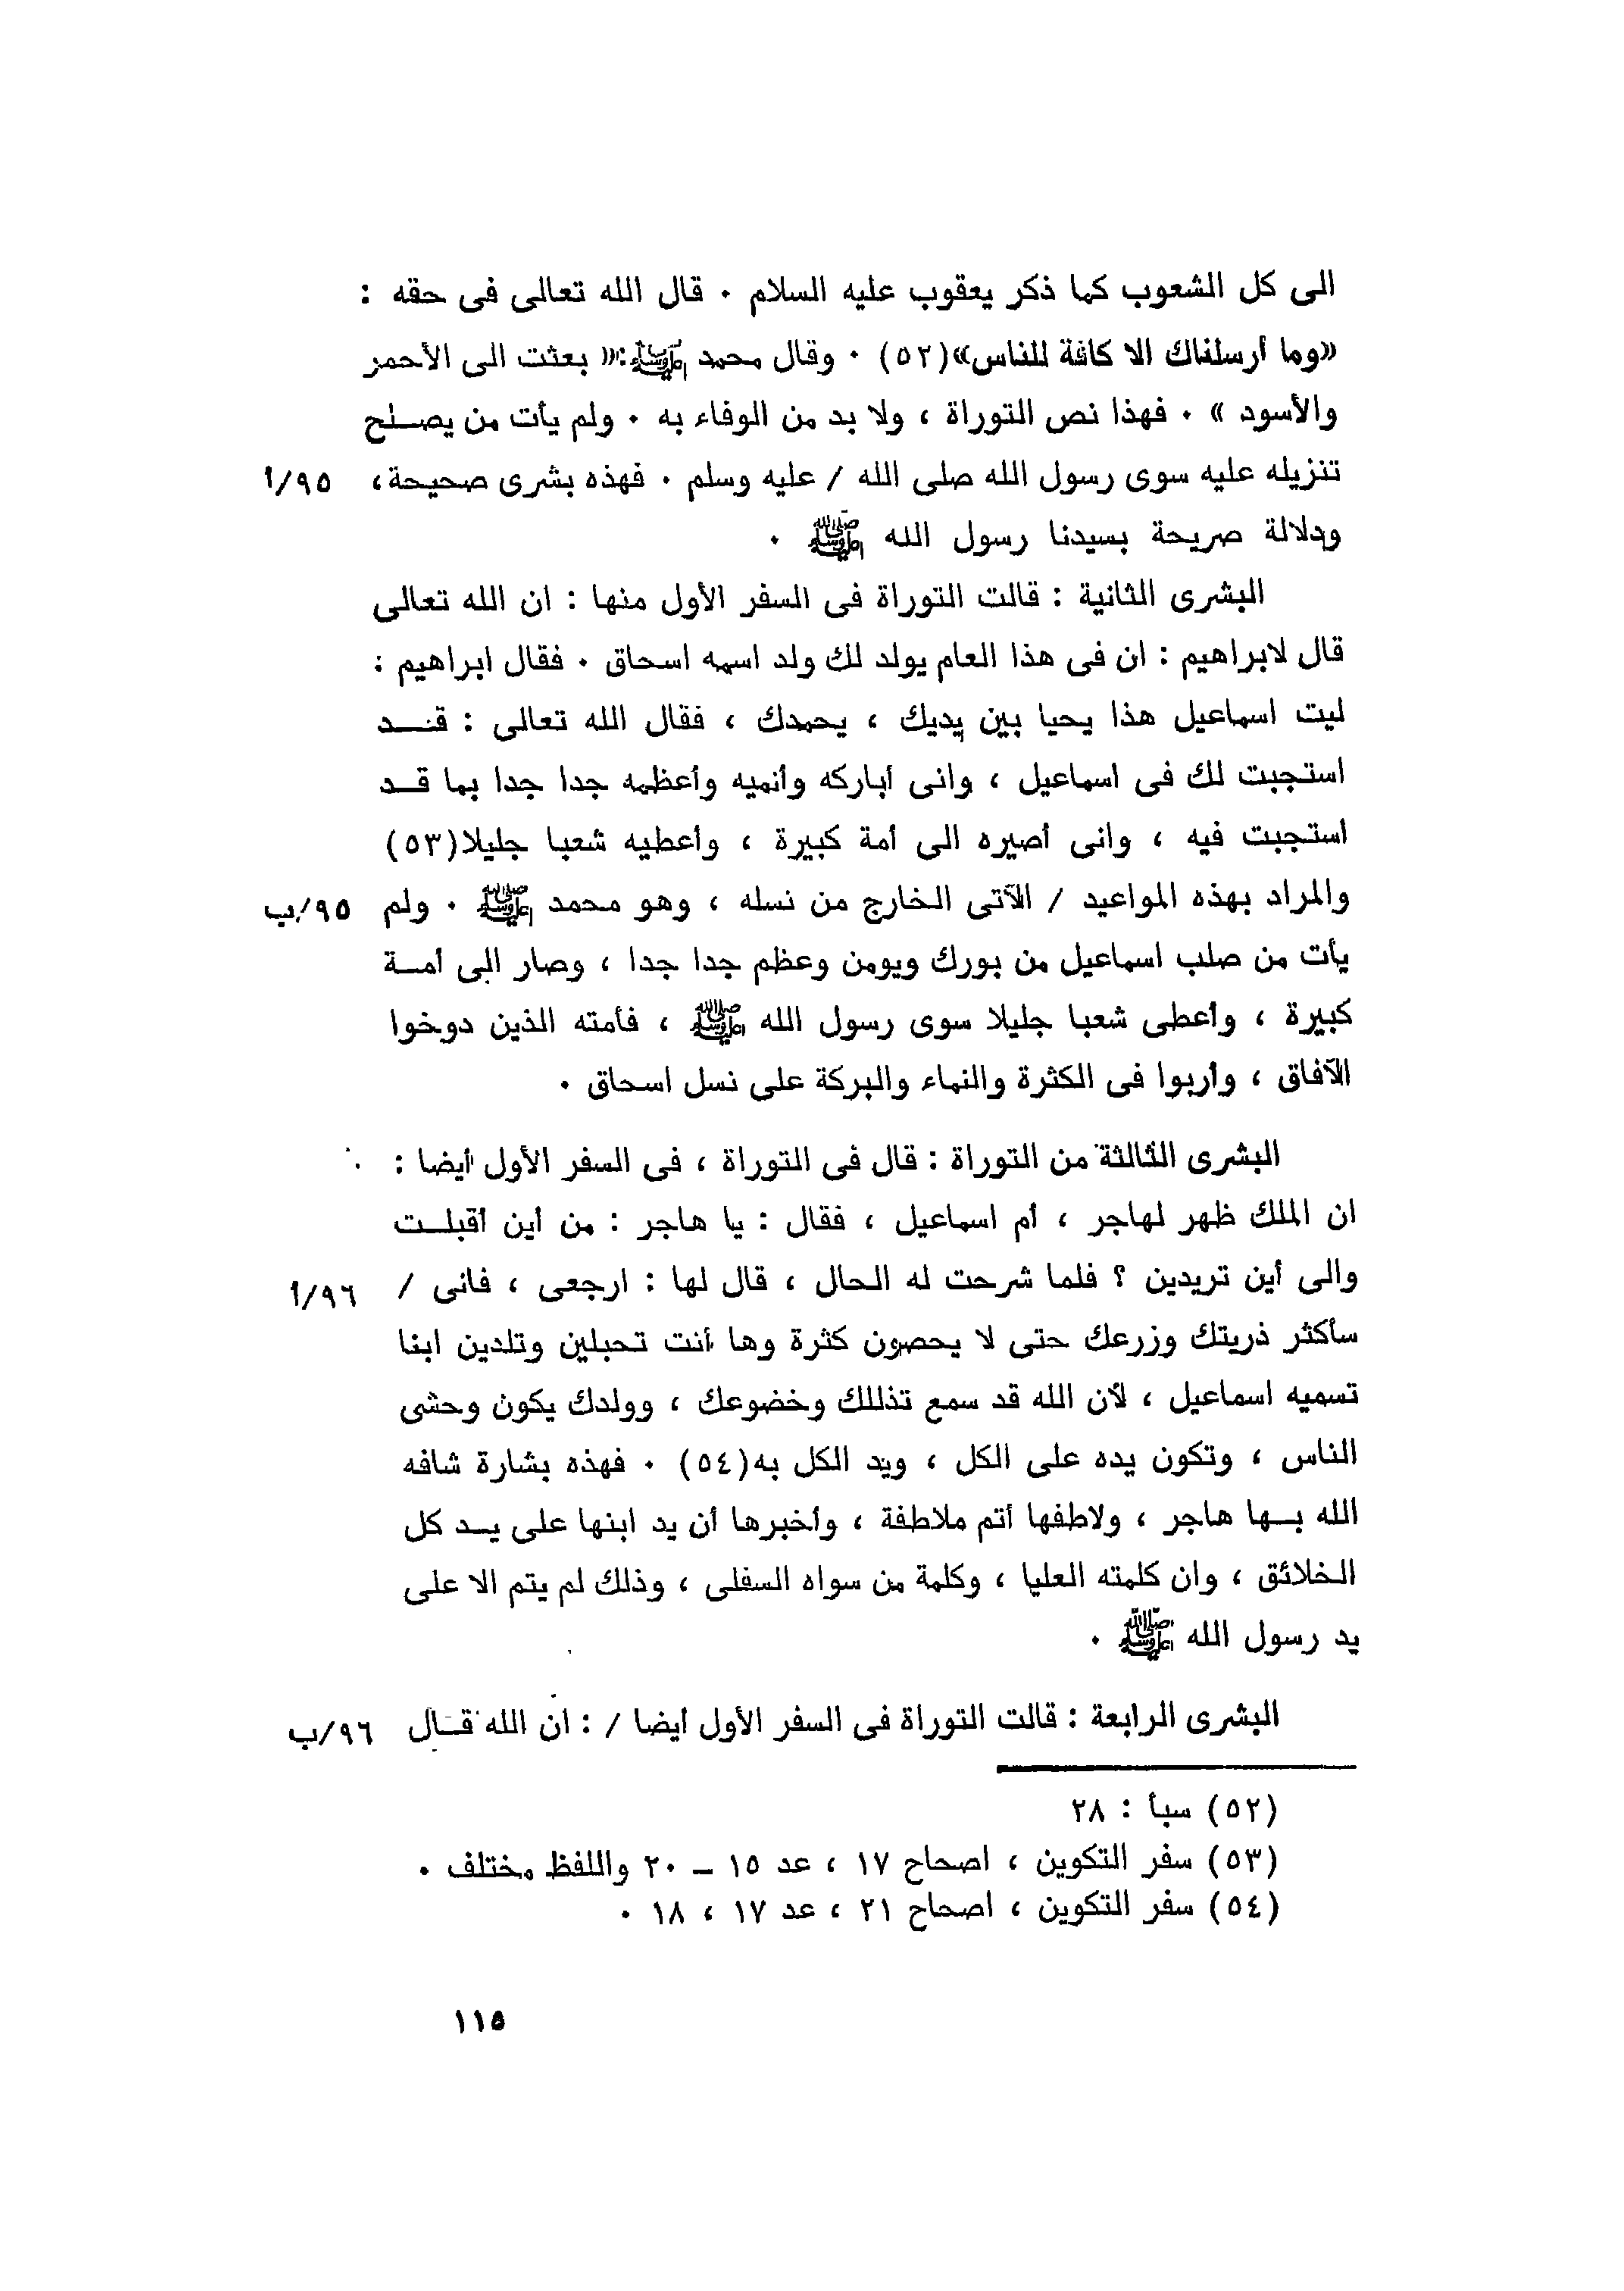 الى كل الشعوب كما ذكر يعقوب عليه السلام ٠ قال الله تعالى فى حقه :
«وما أرسلناك الا كافة للناس»(٥٢) ٠ وقال محمد ﷺ:« بعثت الى الأحمر
والأسود » ٠ فهذا نص التوراة ، ولا بد من الوفاء به ٠ ولم يأت من يصلح
تنزيله عليه سوى رسول الله صلى الله / عليه وسلم ٠ فهذه بشرى صحيحة، ٩٥/أ
ودلالة صريحة بسيدنا رسول الله ﷺ ٠
البشرى الثانية : قالت التوراة فى السفر الأول منها : ان الله تعالى
قال لابراهيم : ان فى هذا العام يولد لك ولد اسمه اسحاق ٠ فقال ابراهيم :
ليت اسماعيل هذا يحيا بين يديك ، يحمدك ، فقال الله تعالى : قد
استجبت لك فى اسماعيل ، وانى أباركه وأنميه وأعظمه جدا جدا بما قد
استجبت فيه ، وانى أصيره الى أمة كبيرة ، وأعطيه شعبا جليلا(٥٣)
والمراد بهذه المواعيد / الآتى الخارج من نسله ، وهو محمد ﷺ ٠ ولم ٩٥/ب
يأت من صلب اسماعيل من بورك ويومن وعظم جدا جدا ، وصار الى أمة
كبيرة ، وأعطى شعبا جليلا سوى رسول الله ﷺ ، فأمته الذين دوخوا
الآفاق ، وأربوا فى الكثرة والنماء والبركة على نسل اسحاق ٠
البشرى الثالثة من التوراة : قال فى التوراة ، فى السفر الأول أيضا :
ان الملك ظهر لهاجر ، أم اسماعيل ، فقال : يا هاجر : من أين أقبلت
والى أين تريدين ؟ فلما شرحت له الحال ، قال لها : ارجعى ، فانى / ٩٦/أ
سأكثر ذريتك وزرعك حتى لا يحصون كثرة وها أنت تحبلين وتلدين ابنا
تسميه اسماعيل ، لأن الله قد سمع تذللك وخضوعك ، وولدك يكون وحشى
الناس ، وتكون يده على الكل ، ويد الكل به(٥٤) ٠ فهذه بشارة شافه
الله بها هاجر ، ولاطفها أتم ملاطفة ، وأخبرها أن يد ابنها على يد كل
الخلائق ، وان كلمته العليا ، وكلمة من سواه السفلى ، وذلك لم يتم الا على
يد رسول الله ﷺ ٠
البشرى الرابعة : قالت التوراة فى السفر الأول أيضا / : ان الله قال ٩٦/ب
(٥٢) سبأ : ٢٨
(٥٣) سفر التكوين ، اصحاح ١٧ ، عد ١٥ – ٢٠ واللفظ مختلف ٠
(٥٤) سفر التكوين ، اصحاح ٢١ ، عد ١٧ ، ١٨ ٠
١١٥